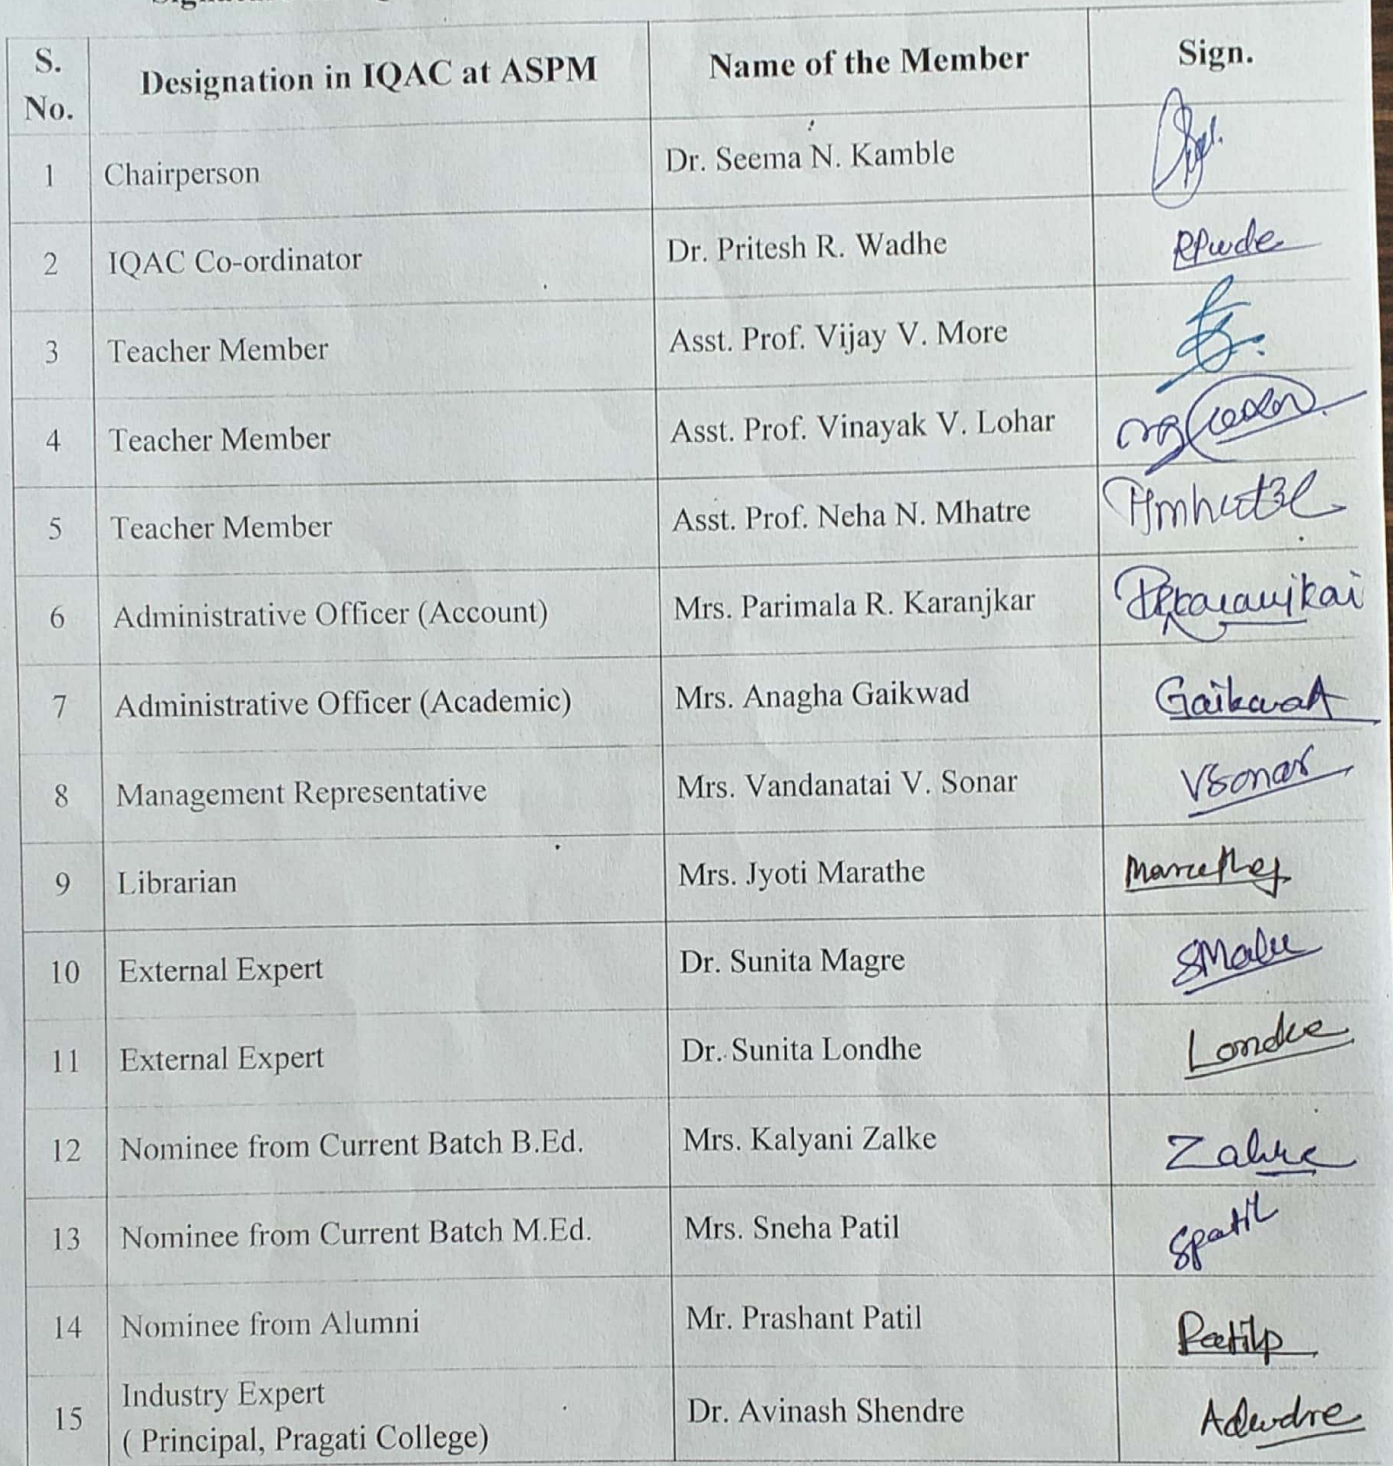 S. No. Designation in IQAC at ASPM Name of the Member Sign.
1 Chairperson Dr. Seema N. Kamble
2 IQAC Co-ordinator Dr. Pritesh R. Wadhe
3 Teacher Member Asst. Prof. Vijay V. More
4 Teacher Member Asst. Prof. Vinayak V. Lohar
5 Teacher Member Asst. Prof. Neha N. Mhatre
6 Administrative Officer (Account) Mrs. Parimala R. Karanjkar
7 Administrative Officer (Academic) Mrs. Anagha Gaikwad Gaikwad
8 Management Representative Mrs. Vandanatai V. Sonar VSonar
9 Librarian Mrs. Jyoti Marathe Marathej
10 External Expert Dr. Sunita Magre
11 External Expert Dr. Sunita Londhe Londhe
12 Nominee from Current Batch B.Ed. Mrs. Kalyani Zalke Zalke
13 Nominee from Current Batch M.Ed. Mrs. Sneha Patil SPatil
14 Nominee from Alumni Mr. Prashant Patil Patilp
15 Industry Expert
( Principal, Pragati College) Dr. Avinash Shendre